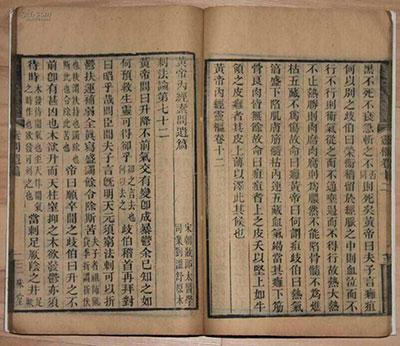 黑不死不良急斬之
則死矣黃帝曰夫子言癰疽
何以別之岐伯曰榮衛稽留於經脈之中則血泣而不
行不行則衛氣從之而不通壅遏而不得行故熱大熱
不止熱勝則肉腐肉腐則為膿然不能陷骨髓不為燋
枯五藏不為傷故命曰癰黃帝曰何謂疽岐伯曰熱氣
淳盛下陷肌膚筋髓枯內連五藏血氣竭當其癰下筋
骨良肉皆無餘故命曰疽疽者上之皮夭以堅上如牛
領之皮癰者其皮上薄以澤此其候也
黃帝內經靈樞卷十二
黃帝內經素問遺篇
宋朝散郎太醫學
司業劉溫舒原本
刺法論第七十二
黃帝問曰升降不前氣交有變即成暴鬱余已知之如
何預救生靈可得卻乎
岐伯稽首再拜對
曰昭乎哉問臣聞夫子言既明天元須窮法刺可以折
鬱扶運補弱全真瀉盛蠲餘令除斯苦
帝曰願卒聞之岐伯曰升之不
前即有甚凶也木欲升而天柱窒抑之木欲發鬱亦須
待時
當刺足厥陰之井